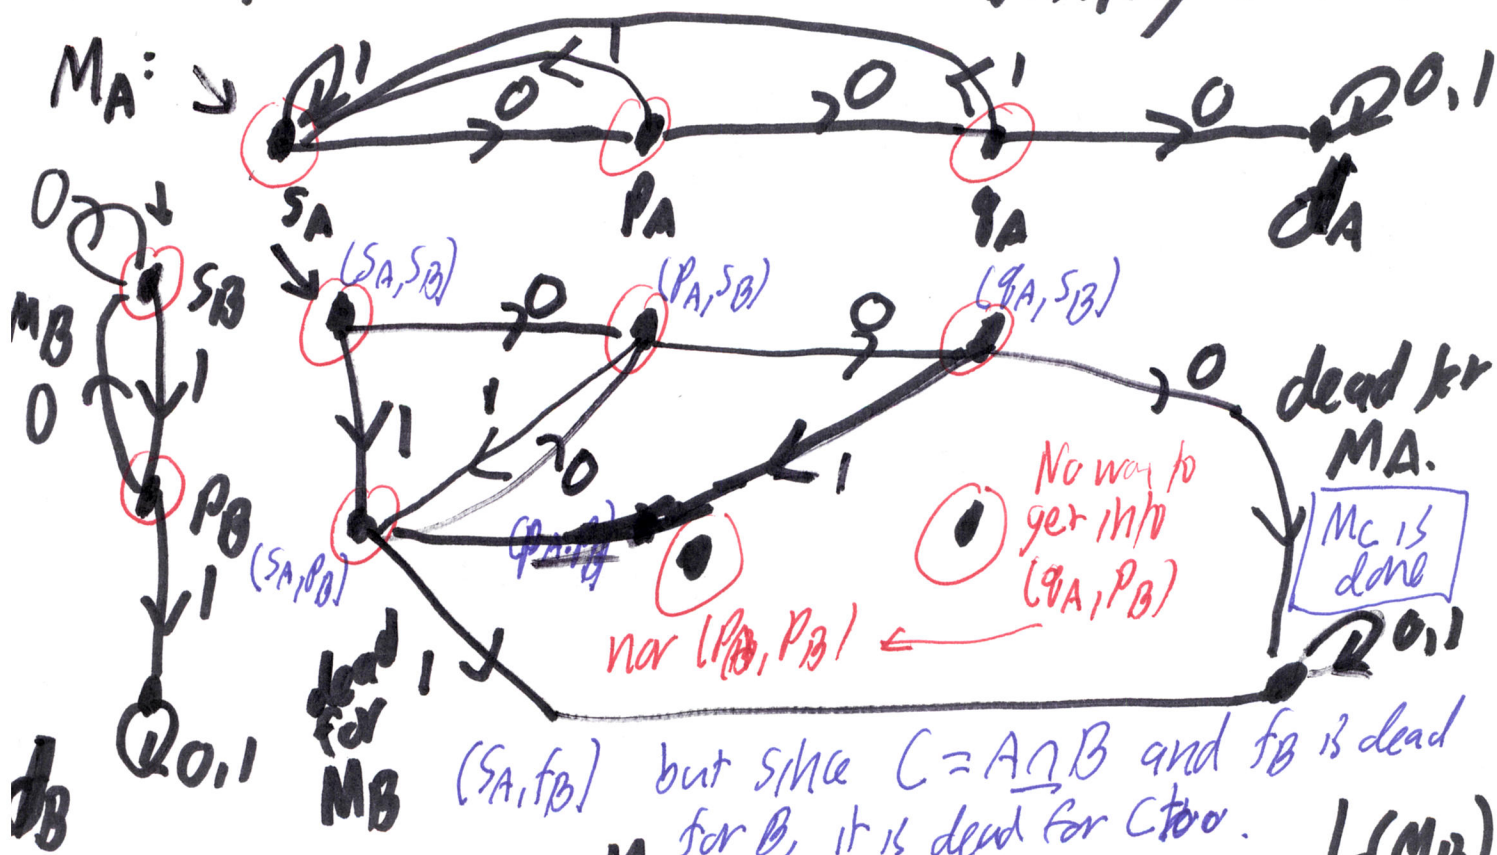 MA:
1
1
1
0
0
0
0,1
SA
PA
qA
dA
0
SB
MB
0
1
PB
1
0,1
dB
(SA,SB)
(PA,SB)
(qA,SB)
0
0
0
1
1
0
1
dead for
MA.
MC is
done
No way to
get into
(qA,PB)
nor (PA,PB)
(SA,PB)
(PA,PB)
0,1
dead
for
MB
1
(SA,fB) but since C = A∩B and fB is dead
for B, it is dead for C too.